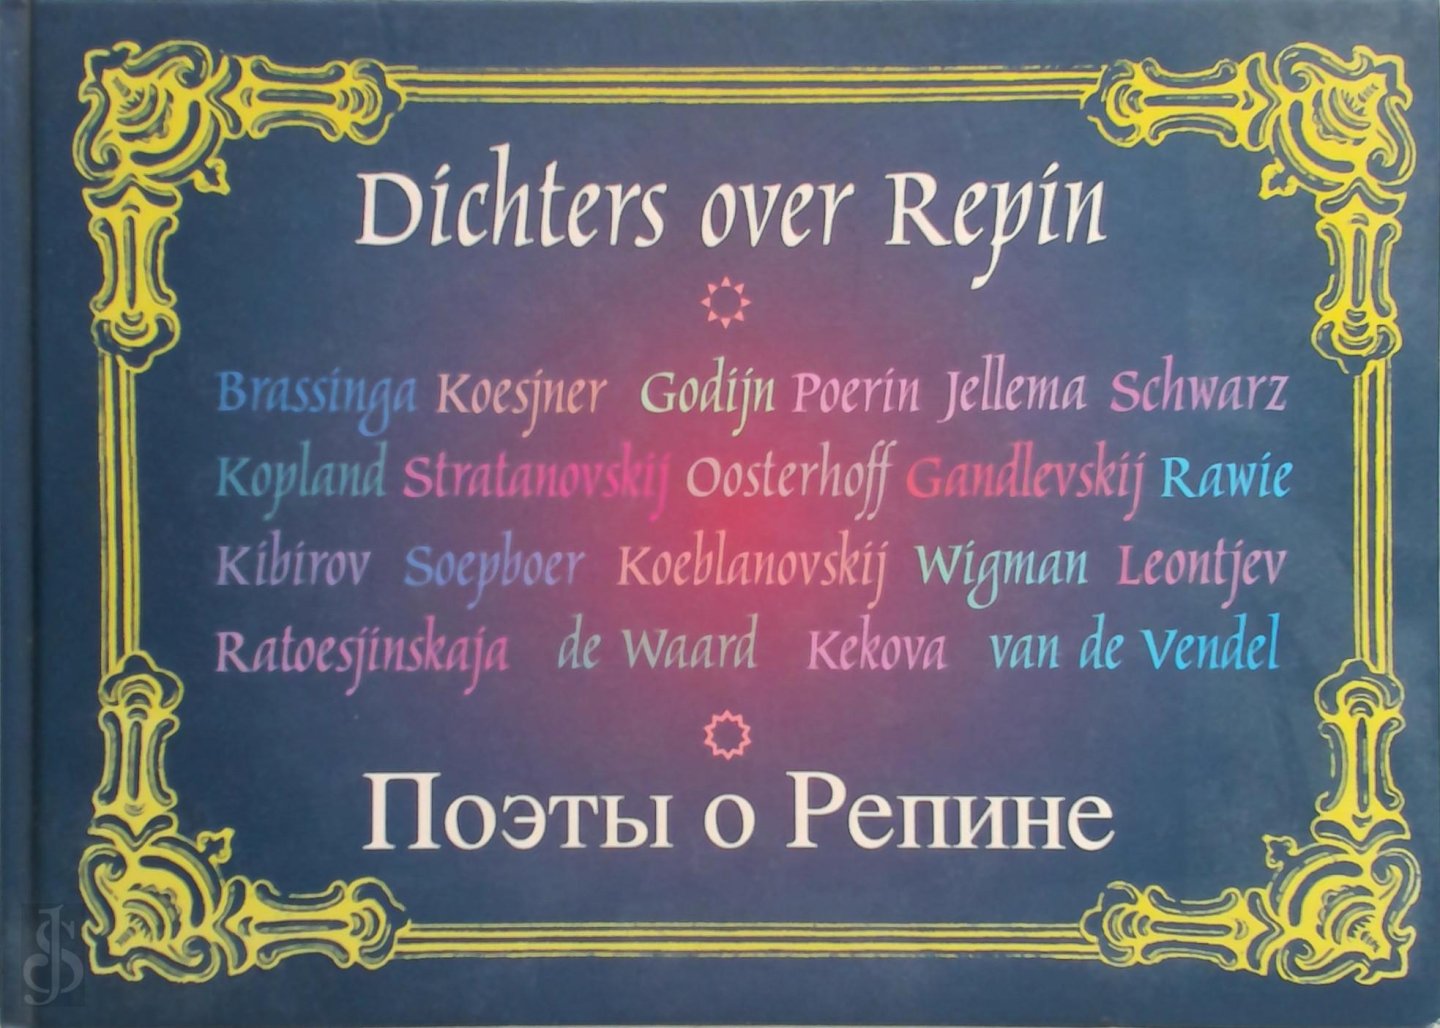 Dichters over Repin
Brassinga Koesjner Godijn Poerin Jellema Schwarz
Kopland Stratanovskij Oosterhoff Gandlevskij Rawie
Kibirov Soepboer Koeblanovskij Wigman Leontjev
Ratoesjinskaja de Waard Kekova van de Vendel
Поэты о Репине